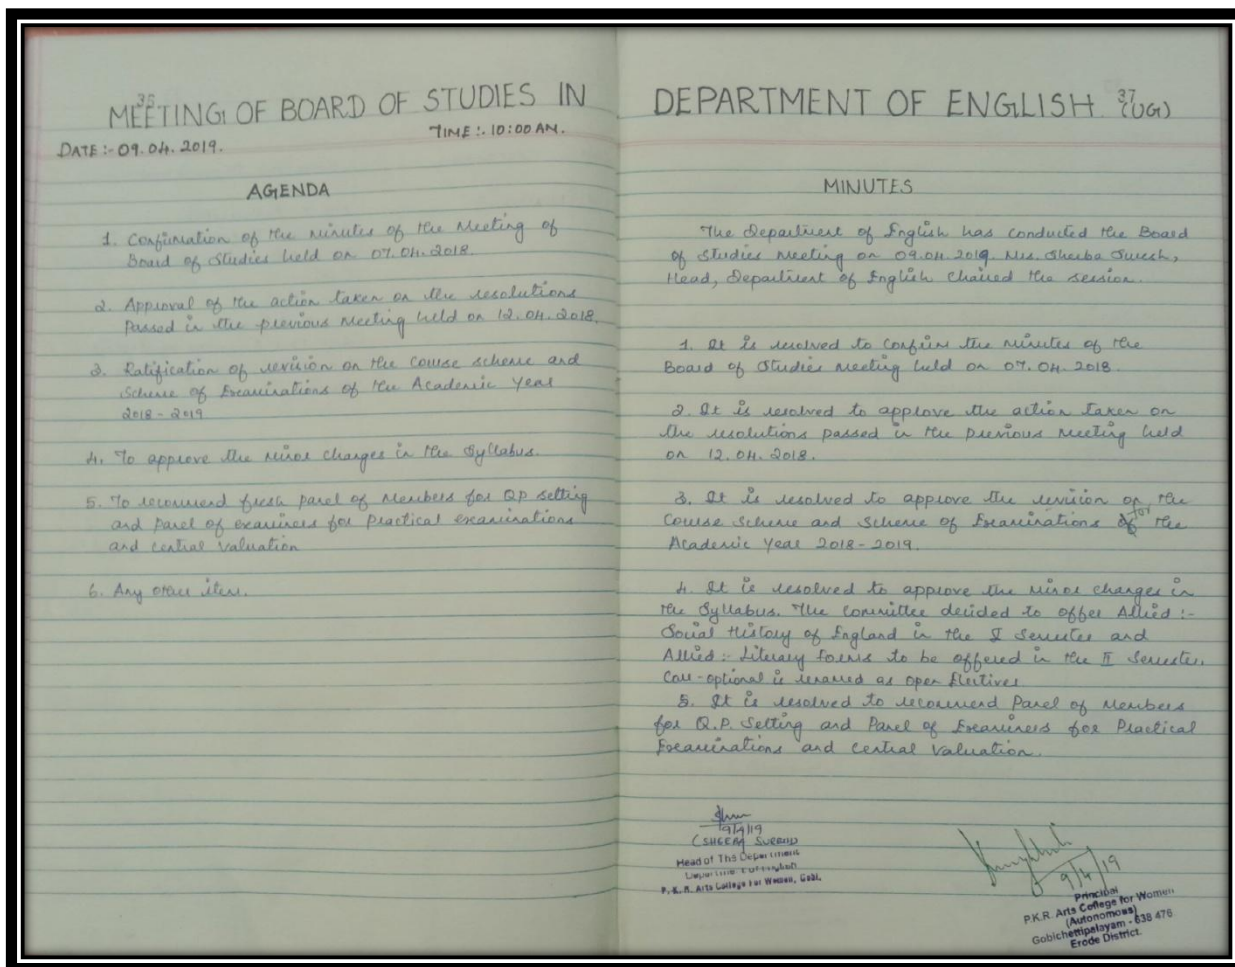 36
MEETING OF BOARD OF STUDIES IN
DATE :- 09.04.2019.
TIME :- 10:00 AM.
AGENDA
1. Confirmation of the minutes of the Meeting of
Board of Studies held on 07.04.2018.
2. Approval of the action taken on the resolutions
passed in the previous meeting held on 12.04.2018.
3. Ratification of revision on the course scheme and
Scheme of Examinations of the Academic Year
2018-2019
4. To approve the minor changes in the Syllabus.
5. To recommend fresh panel of Members for QP setting
and panel of examiners for practical examinations
and central valuation
6. Any other item.
37
DEPARTMENT OF ENGLISH (UG)
MINUTES
The Department of English has conducted the Board
of Studies meeting on 09.04.2019. Mrs. Sheeba Suresh,
Head, Department of English chaired the session.
1. It is resolved to confirm the minutes of the
Board of Studies meeting held on 07.04.2018.
2. It is resolved to approve the action taken on
the resolutions passed in the previous meeting held
on 12.04.2018.
3. It is resolved to approve the revision on the
Course scheme and scheme of Examinations for the
Academic Year 2018-2019.
4. It is resolved to approve the minor changes in
the Syllabus. The committee decided to offer Allied :-
Social History of England in the I Semester and
Allied :- Literary Forms to be offered in the II Semester.
Core-optional is renamed as open Electives.
5. It is resolved to recommend Panel of Members
for Q.P. Setting and Panel of Examiners for Practical
Examinations and Central Valuation.
9/4/19
Head of The Department
Department of English
P. K. R. Arts College For Women, Gobi.
9/4/19
Principal
P.K.R. Arts College for Women
(Autonomous)
Gobichettipalayam - 638 476
Erode District.